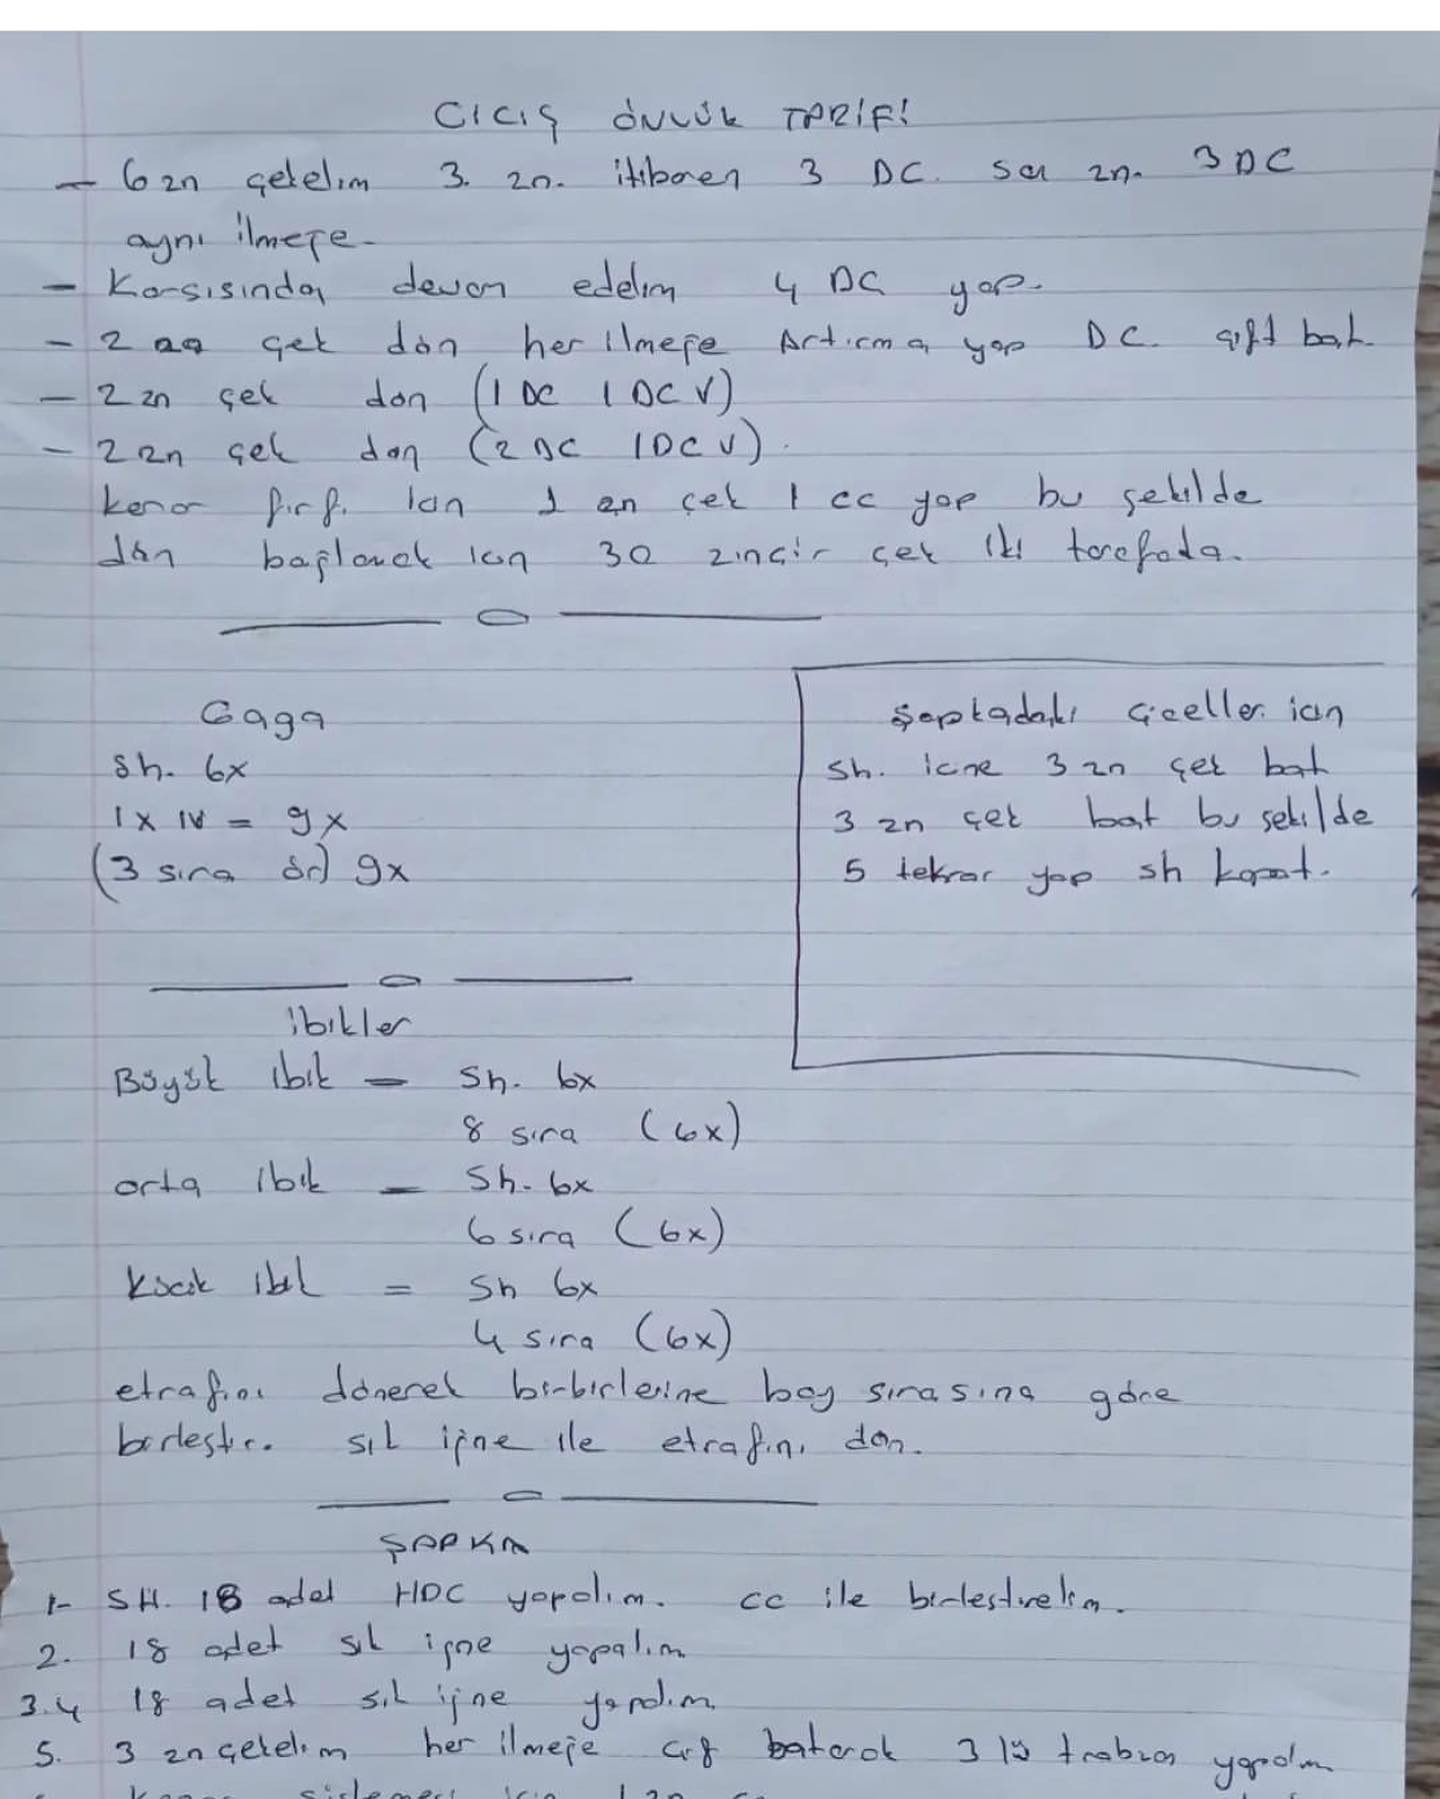 CICIŞ ÖNLÜK TARİFİ
— 6 zn çekelim 3. zn. itibaren 3 DC. son zn. 3 DC
aynı ilmeğe.
— Karşısından devam edelim 4 DC yap.
— 2 zn çek dön her ilmeğe Artırma yap DC. çift bat
— 2 zn çek dön (1 DC 1 DC V)
— 2 zn çek dön (2 DC 1 DC V).
kenar fırfı için 1 zn çek 1 cc yap bu şekilde
dön bağlamak için 30 zincir çek iki tarafada.
Gaga
sh. 6x
1x 1V = 9x
(3 sıra ör) 9x
Şapkadaki Çiçekler için
sh. içine 3 zn çek bat
3 zn çek bat bu şekilde
5 tekrar yap sh kapat.
ibikler
Büyük ibik — Sh. 6x
8 sıra (6x)
orta ibik — Sh. 6x
6 sıra (6x)
Küçük ibik = Sh 6x
4 sıra (6x)
etrafını dönerek birbirlerine boy sırasına göre
birleştir. sık iğne ile etrafını dön.
ŞAPKA
1- SH. 18 adet HDC yapalım. cc ile birleştirelim.
2. 18 adet sık iğne yapalım
3.4 18 adet sık iğne yapalım
5. 3 zn çekelim her ilmeğe çift batarak 3 lü trabzan yapalım
için 1 zn